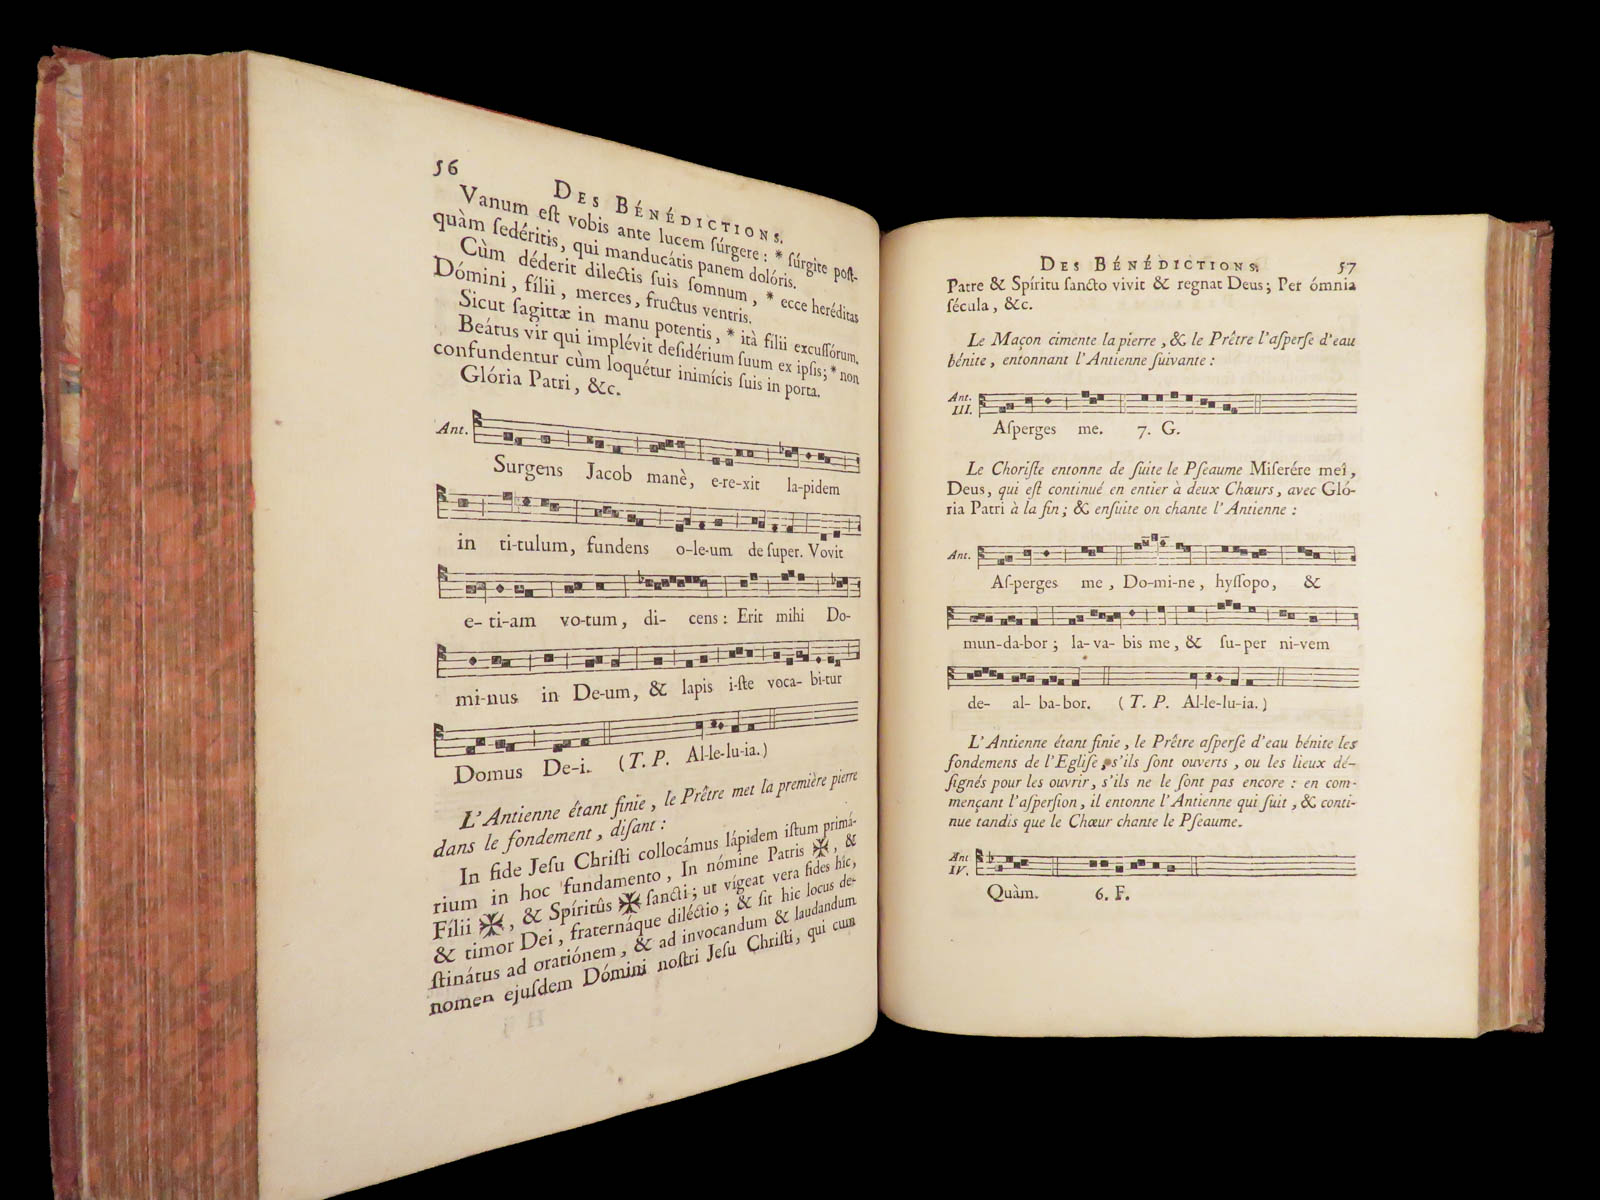 56
DES BÉNÉDICTIONS.
Vanum eſt vobis ante lucem ſúrgere : * ſúrgite poſt-
quàm ſedéritis, qui manducátis panem dolóris.
Cùm déderit diléctis ſuis ſomnum, * ecce heréditas
Dómini, fílii, merces, fructus ventris.
Sicut ſagittæ in manu potentis, * ità fílii excuſſórum.
Beátus vir qui implévit deſidérium ſuum ex ipſis; * non
confundentur cùm loquétur inimícis ſuis in porta.
Glória Patri, &c.
Ant.
Surgens Jacob manè, e-re-xit la-pidem
in ti-tulum, fundens o-le-um de ſuper. Vovit
e-ti-am vo-tum, di- cens : Erit mihi Do-
mi-nus in De-um, & lapis i-ſte voca-bi-tur
Domus De-i. (T. P. Al-le-lu-ia.)
L'Antienne étant finie, le Prêtre met la première pierre
dans le fondement, diſant :
In fide Jeſu Chriſti collocámus lápidem iſtum primá-
rium in hoc fundamento, In nómine Patris ✠, &
Fílii ✠, & Spíritûs ✠ ſancti; ut vígeat vera fides hîc,
& timor Dei, fraternáque diléctio; & ſit hic locus de-
ſtinátus ad oratiónem, & ad invocandum & laudandum
nomen ejuſdem Dómini noſtri Jeſu Chriſti, qui cum
DES BÉNÉDICTIONS. 57
Patre & Spíritu ſancto vivit & regnat Deus; Per ómnia
ſécula, &c.
Le Maçon cimente la pierre, & le Prêtre l'aſperſe d'eau
bénite, entonnant l'Antienne ſuivante :
Ant.
III.
Aſperges me. 7. G.
Le Choriſte entonne de ſuite le Pſeaume Miſerére meî,
Deus, qui eſt continué en entier à deux Chœurs, avec Gló-
ria Patri à la fin; & enſuite on chante l'Antienne :
Ant.
Aſ-perges me, Do-mi-ne, hyſſopo, &
mun-da-bor; la-va-bis me, & ſu-per ni-vem
de- al- ba-bor. (T. P. Al-le-lu-ia.)
L'Antienne étant finie, le Prêtre aſperſe d'eau bénite les
fondemens de l'Egliſe, s'ils ſont ouverts, ou les lieux dé-
ſignés pour les ouvrir, s'ils ne le ſont pas encore : en com-
mençant l'aſperſion, il entonne l'Antienne qui ſuit, & conti-
nue tandis que le Chœur chante le Pſeaume.
Ant
IV.
Quàm. 6. F.